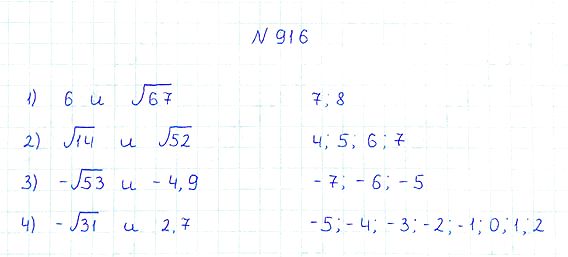 N 916
1) 6 и √67 7; 8
2) √14 и √52 4; 5; 6; 7
3) -√53 и -4,9 -7; -6; -5
4) -√31 и 2,7 -5; -4; -3; -2; -1; 0; 1; 2